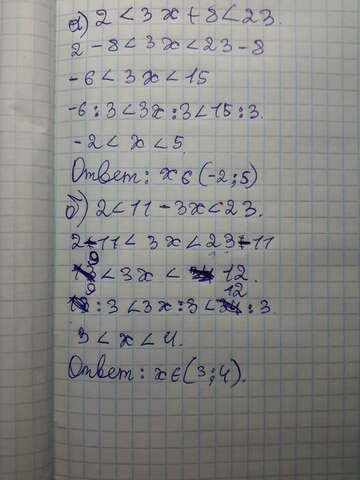 а) 2 < 3x + 8 < 23.
2 - 8 < 3x < 23 - 8
-6 < 3x < 15
-6 : 3 < 3x : 3 < 15 : 3.
-2 < x < 5.
Ответ: x ∈ (-2; 5)
б) 2 < 11 - 3x < 23.
2 - 11 < 3x < 23 - 11
< 3x < 12.
: 3 < 3x : 3 < 12 : 3.
3 < x < 4.
Ответ: x ∈ (3; 4).